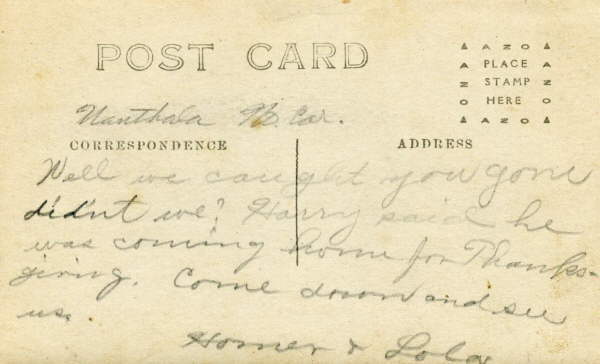 POST CARD
AZO
PLACE
STAMP
HERE
AZO
AZO
AZO
Nanthala N. Car.
CORRESPONDENCE
ADDRESS
Well we caught you gone
didn't we? Harry said he
was coming home for Thanks-
giving. Come down and see
us.
Homer & Lola